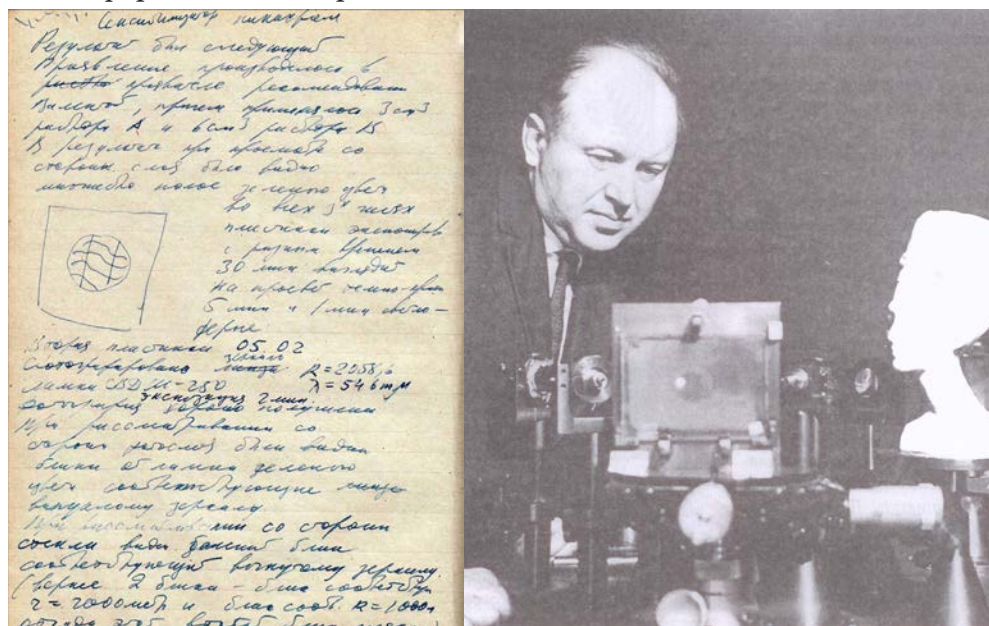 Сенсибилизатор пинахром
Результат был следующий
Проявление производилось в
рекомендовано
причем применялось 3 см3
раствора А и 6 см3 раствора В
В результате при просмотре со
стороны слоя было видно
множество полос зеленого цвета
во всех 3х частях
пластинки
с разным временем
30 мин выглядит
на просвет темно-
5 мин и 1 мин светло-
Вторая пластинка 05.02
Сфотографировано зеркало линза R=2058,6
лампа СВДШ-250 λ=546 mμ
экспозиция 2 мин.
Фотография хорошо получилась
При рассматривании со
стороны фотослоя были видны
блики от лампы зеленого
цвета соответствующие
выпуклому зеркалу.
При рассматривании со стороны
стекла виден блик
соответствующий вогнутому зеркалу.
(вернее 2 блика – блик соответств
r = 2000 и блик соотв. R=1000